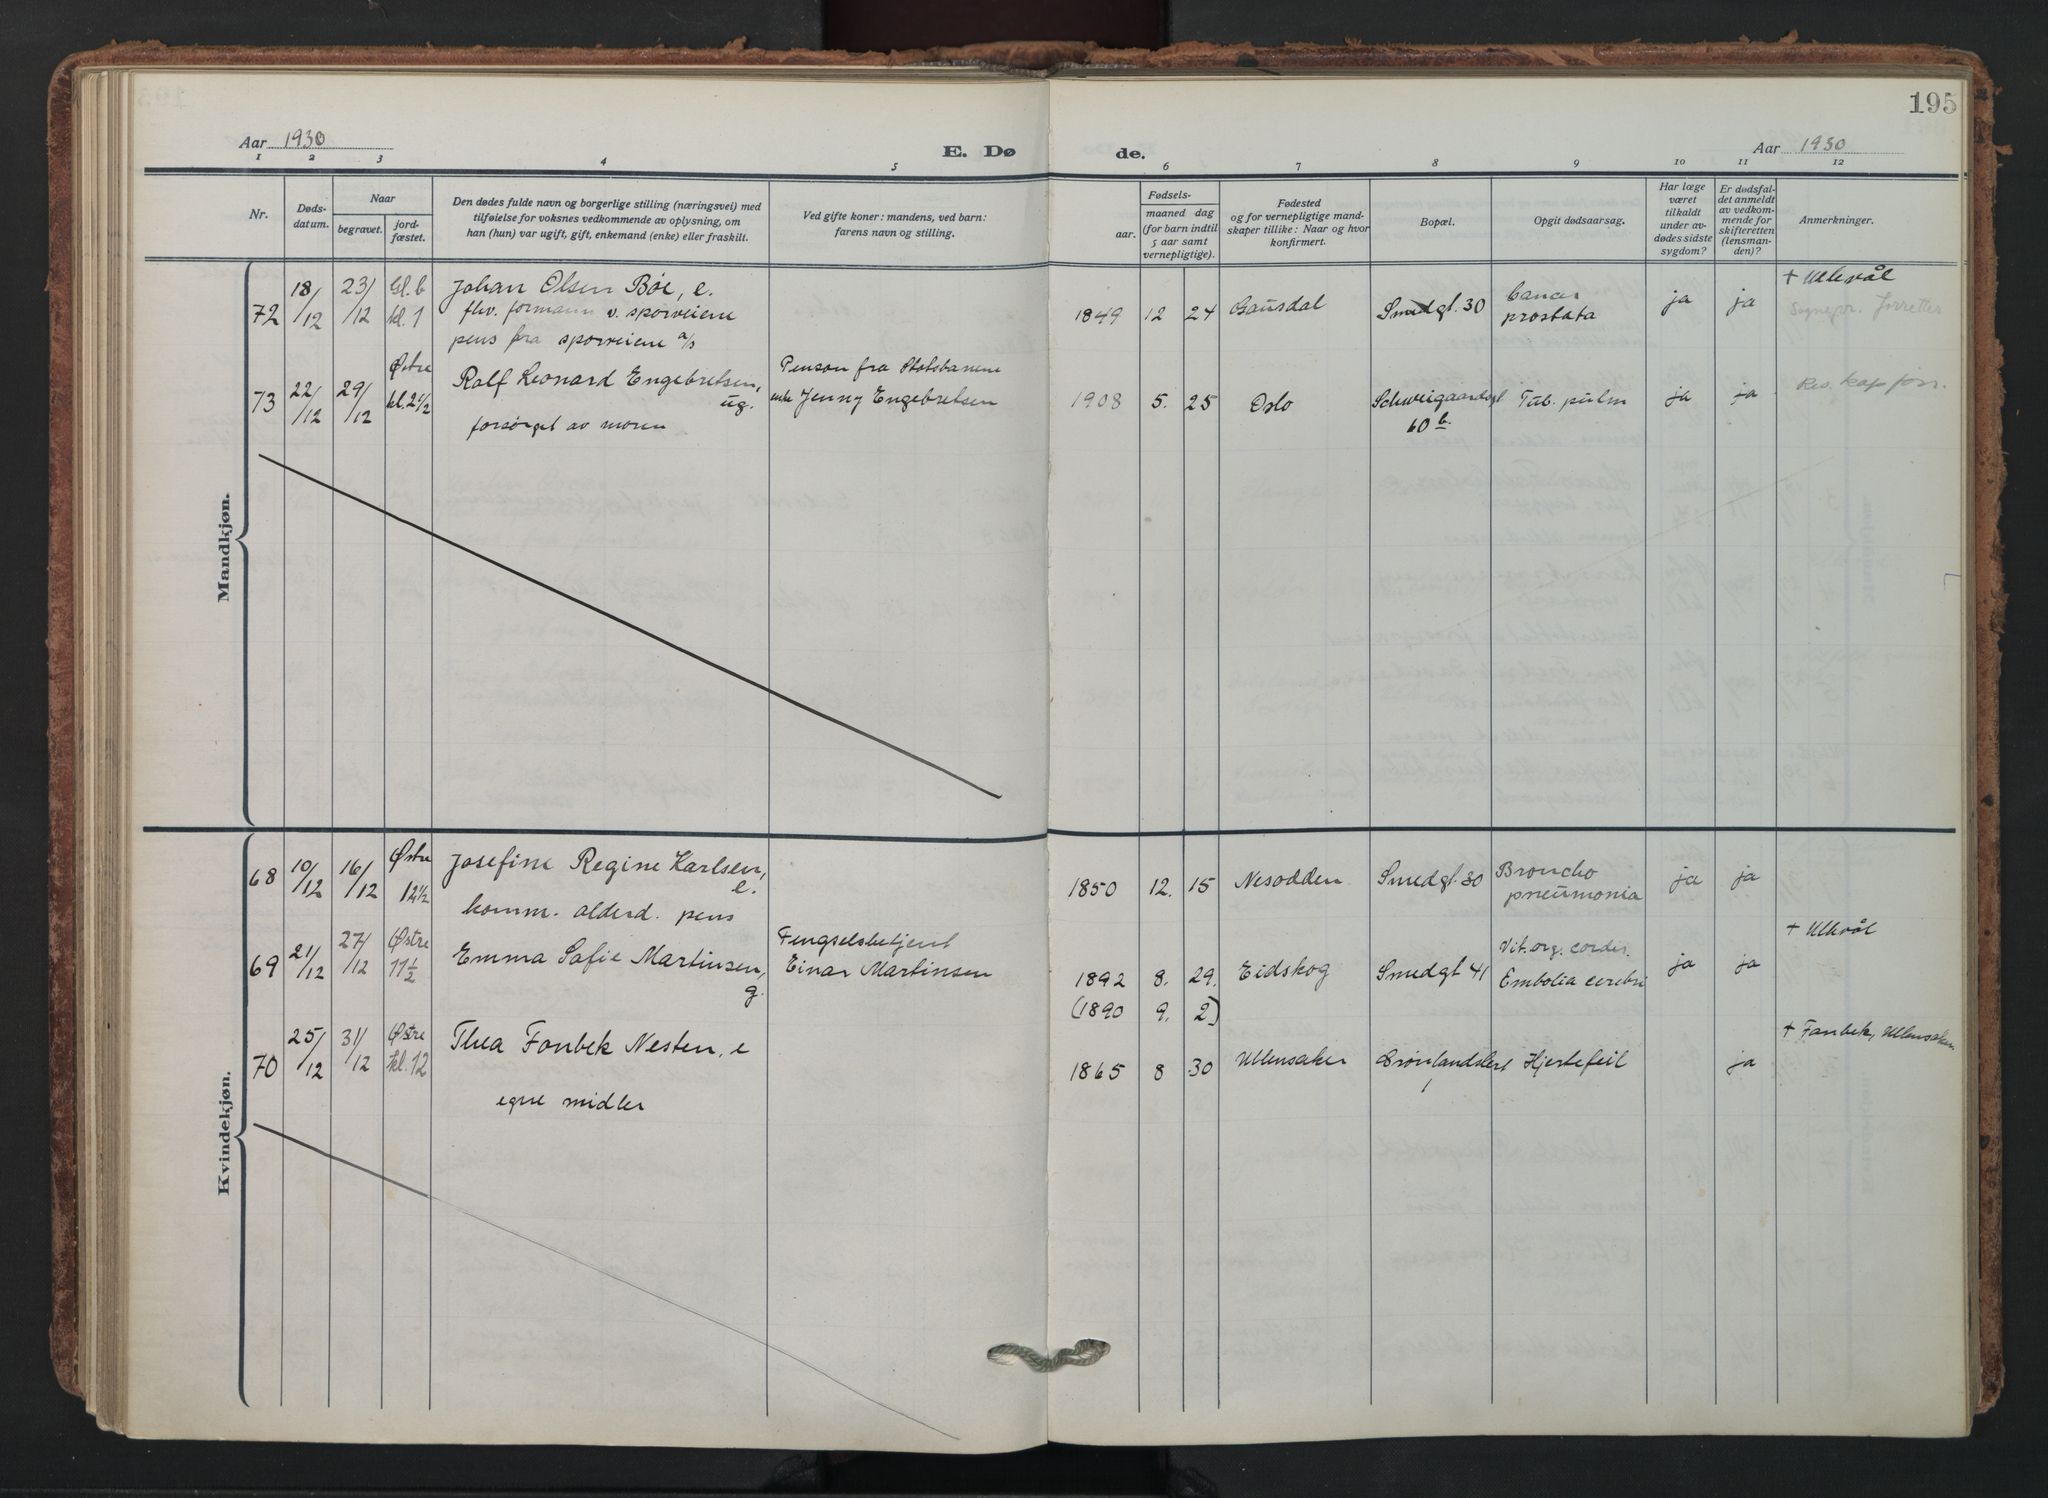 195
Aar 1930
E. Dø
de.
Aar 1930
1 2 3 4 5 6 7 8 9 10 11 12
Nr.
Døds-
datum.
Naar
begravet.
jord-
fæstet.
Den dødes fulde navn og borgerlige stilling (næringsvei) med
tilføielse for voksnes vedkommende av oplysning, om
han (hun) var ugift, gift, enkemand (enke) eller fraskilt.
Ved gifte koner: mandens, ved barn:
farens navn og stilling.
Fødsels-
aar.
maaned dag
(for barn indtil
5 aar samt
vernepligtige).
Fødested
og for vernepligtige mand-
skaper tillike: Naar og hvor
konfirmert.
Bopæl.
Opgit dødsaarsag.
Har læge
været
tilkaldt
under av-
dødes sidste
sygdom?
Er dødsfal-
det anmeldt
av vedkom-
mende for
skifteretten
(lensman-
den)?
Anmerkninger.
Mandkjøn.
72
18/12
23/12
Gl. b
kl. 1
Johan Olsen Bøe, e.
fhv. formann v. sporveiene
pens fra sporveiene a/s
1849 12 24
Gausdal
Smedgt. 30
Cancer
prostata
ja
ja
+ Ullevål
Sognepr. forretter
73
22/12
29/12
Østre
kl. 2 1/2
Ralf Leonard Engebretsen,
ug.
forsørget av moren
Penson fra Statsbanene
enke Jenny Engebretsen
1908 5. 25
Oslo
Schweigaardsgt
60 b.
Tub. pulm
ja
ja
Res. kap forr.
Kvindekjøn.
68
10/12
16/12
Østre
12 1/2
Josefine Regine Karlsen,
e.
komm. alderd. pens
1850 12. 15
Nesodden
Smedgt. 30
Broncho
pneumonia
ja
ja
69
21/12
27/12
Østre
11 1/2
Emma Sofie Martinsen,
g.
Fengselsbetjent
Einar Martinsen
1892 8. 29.
(1890 9. 2)
Eidskog
Smedgt 41
Vit. org. cordis.
Embolia cerebri
ja
ja
+ Ullevål
70
25/12
31/12
Østre
kl. 12
Thea Fonbek Nesten, e
egne midler
1865 8 30
Ullensaker
Grønlandsleret
1
Hjertefeil
ja
+ Fanbek, Ullensaker